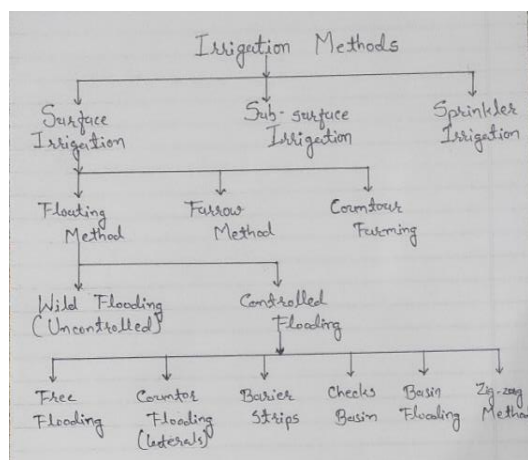 Irrigation Methods
Surface Irrigation
Sub-surface Irrigation
Sprinkler Irrigation
Floating Method
Furrow Method
Countour Farming
Wild Flooding (Uncontrolled)
Controlled Flooding
Free Flooding
Countor Flooding (laterals)
Barier Strips
Checks Basin
Basin Flooding
Zig-zag Method